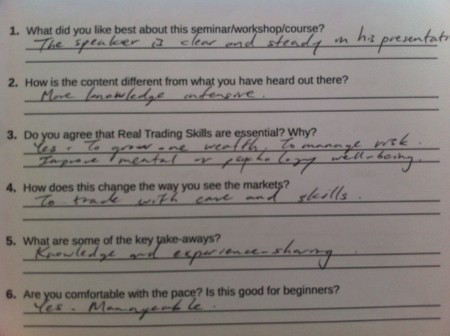 1. What did you like best about this seminar/workshop/course?
The speaker is clear and steady in his presentati
2. How is the content different from what you have heard out there?
More knowledge intensive.
3. Do you agree that Real Trading Skills are essential? Why?
Yes. To grow one wealth, To manage risk.
Improve mental or psychology well-being.
4. How does this change the way you see the markets?
To trade with care and skills.
5. What are some of the key take-aways?
Knowledge and experience-sharing
6. Are you comfortable with the pace? Is this good for beginners?
Yes. Manageable.